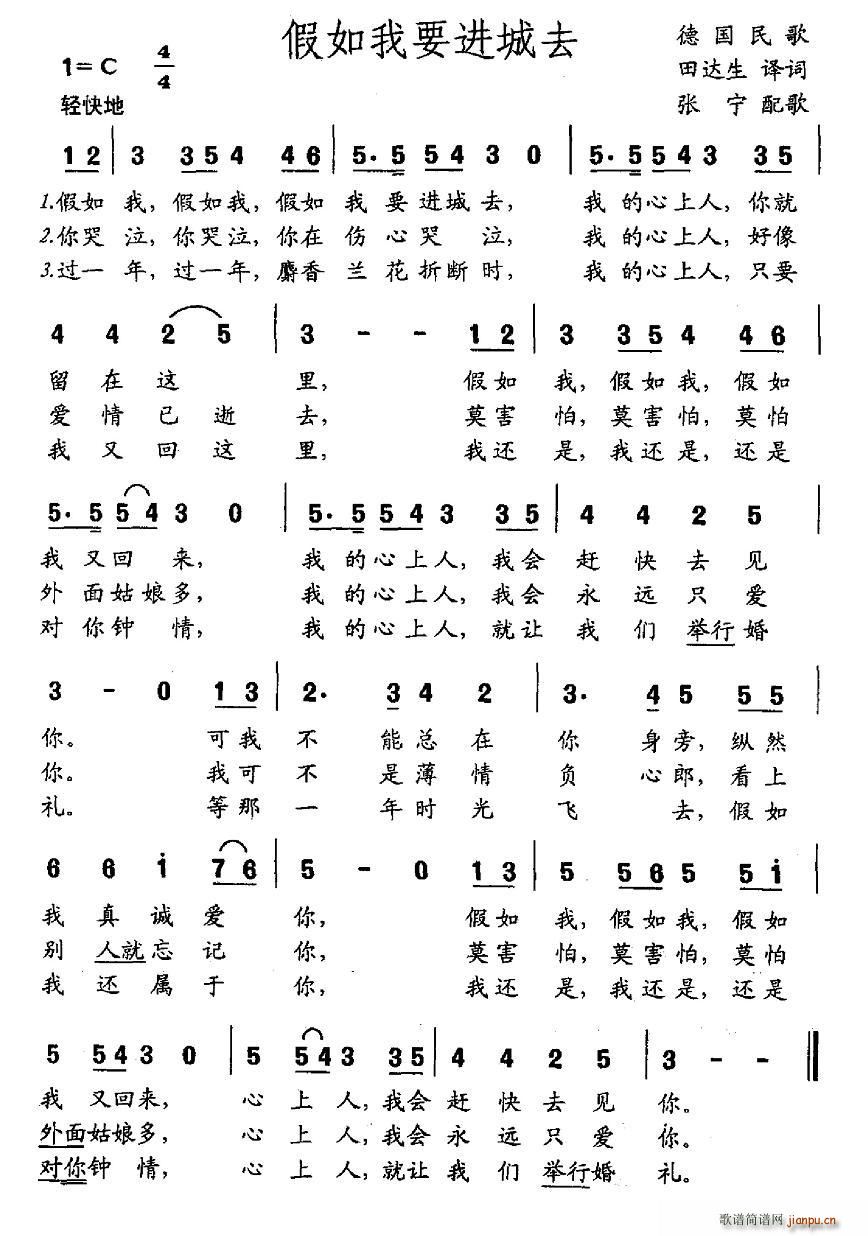 假如我要进城去
德国民歌
1=C 4/4
田达生 译词
轻快地
张宁 配歌
1 2 | 3 3 5 4 4 6 | 5· 5 5 4 3 0 | 5· 5 5 4 3 3 5 |
1.假如 我，假如我，假如 我 要 进城 去， 我 的心 上 人，你就
2.你哭 泣，你哭 泣，你在 伤 心 哭 泣， 我 的心 上 人，好像
3.过一 年，过一 年，麝香 兰 花 折断 时， 我 的心 上 人，只要
4 4 2 5 | 3 - - 1 2 | 3 3 5 4 4 6 |
留 在 这 里， 假如 我，假如我，假如
爱 情 已 逝 去， 莫害 怕，莫害 怕，莫怕
我 又 回 这 里， 我还 是，我还 是，还是
5· 5 5 4 3 0 | 5· 5 5 4 3 3 5 | 4 4 2 5 |
我 又回 来， 我 的心 上 人，我会 赶 快 去 见
外 面姑 娘 多， 我 的心 上 人，我会 永 远 只 爱
对 你钟 情， 我 的心 上 人，就让 我 们 举行 婚
3 - 0 1 3 | 2· 3 4 2 | 3· 4 5 5 5 |
你。 可我 不 能 总 在 你 身 旁，纵然
你。 我可 不 是 薄 情 负 心 郎，看上
礼。 等那 一 年 时 光 飞 去，假如
6 6 i 7 6 | 5 - 0 1 3 | 5 5 6 5 5 i |
我 真 诚 爱 你， 假如 我，假如我，假如
别 人就 忘 记 你， 莫害 怕，莫害 怕，莫怕
我 还 属 于 你， 我还 是，我还 是，还是
5 5 4 3 0 | 5 5 4 3 3 5 | 4 4 2 5 | 3 - - ‖
我 又回 来， 心 上 人，我会 赶 快 去 见 你。
外面 姑娘 多， 心 上 人，我会 永 远 只 爱 你。
对你 钟 情， 心 上 人，就让 我 们 举行 婚 礼。
歌谱简谱网
jianpu.cn